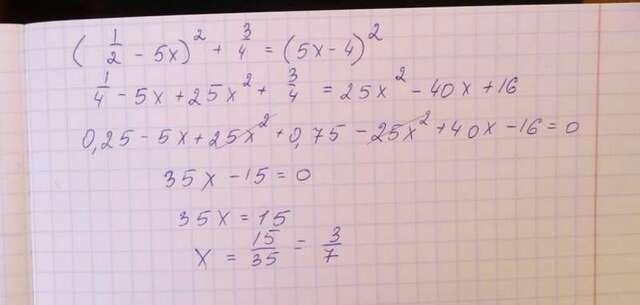 (1/2 - 5x)² + 3/4 = (5x - 4)²
1/4 - 5x + 25x² + 3/4 = 25x² - 40x + 16
0,25 - 5x + 25x² + 0,75 - 25x² + 40x - 16 = 0
35x - 15 = 0
35x = 15
x = 15/35 = 3/7